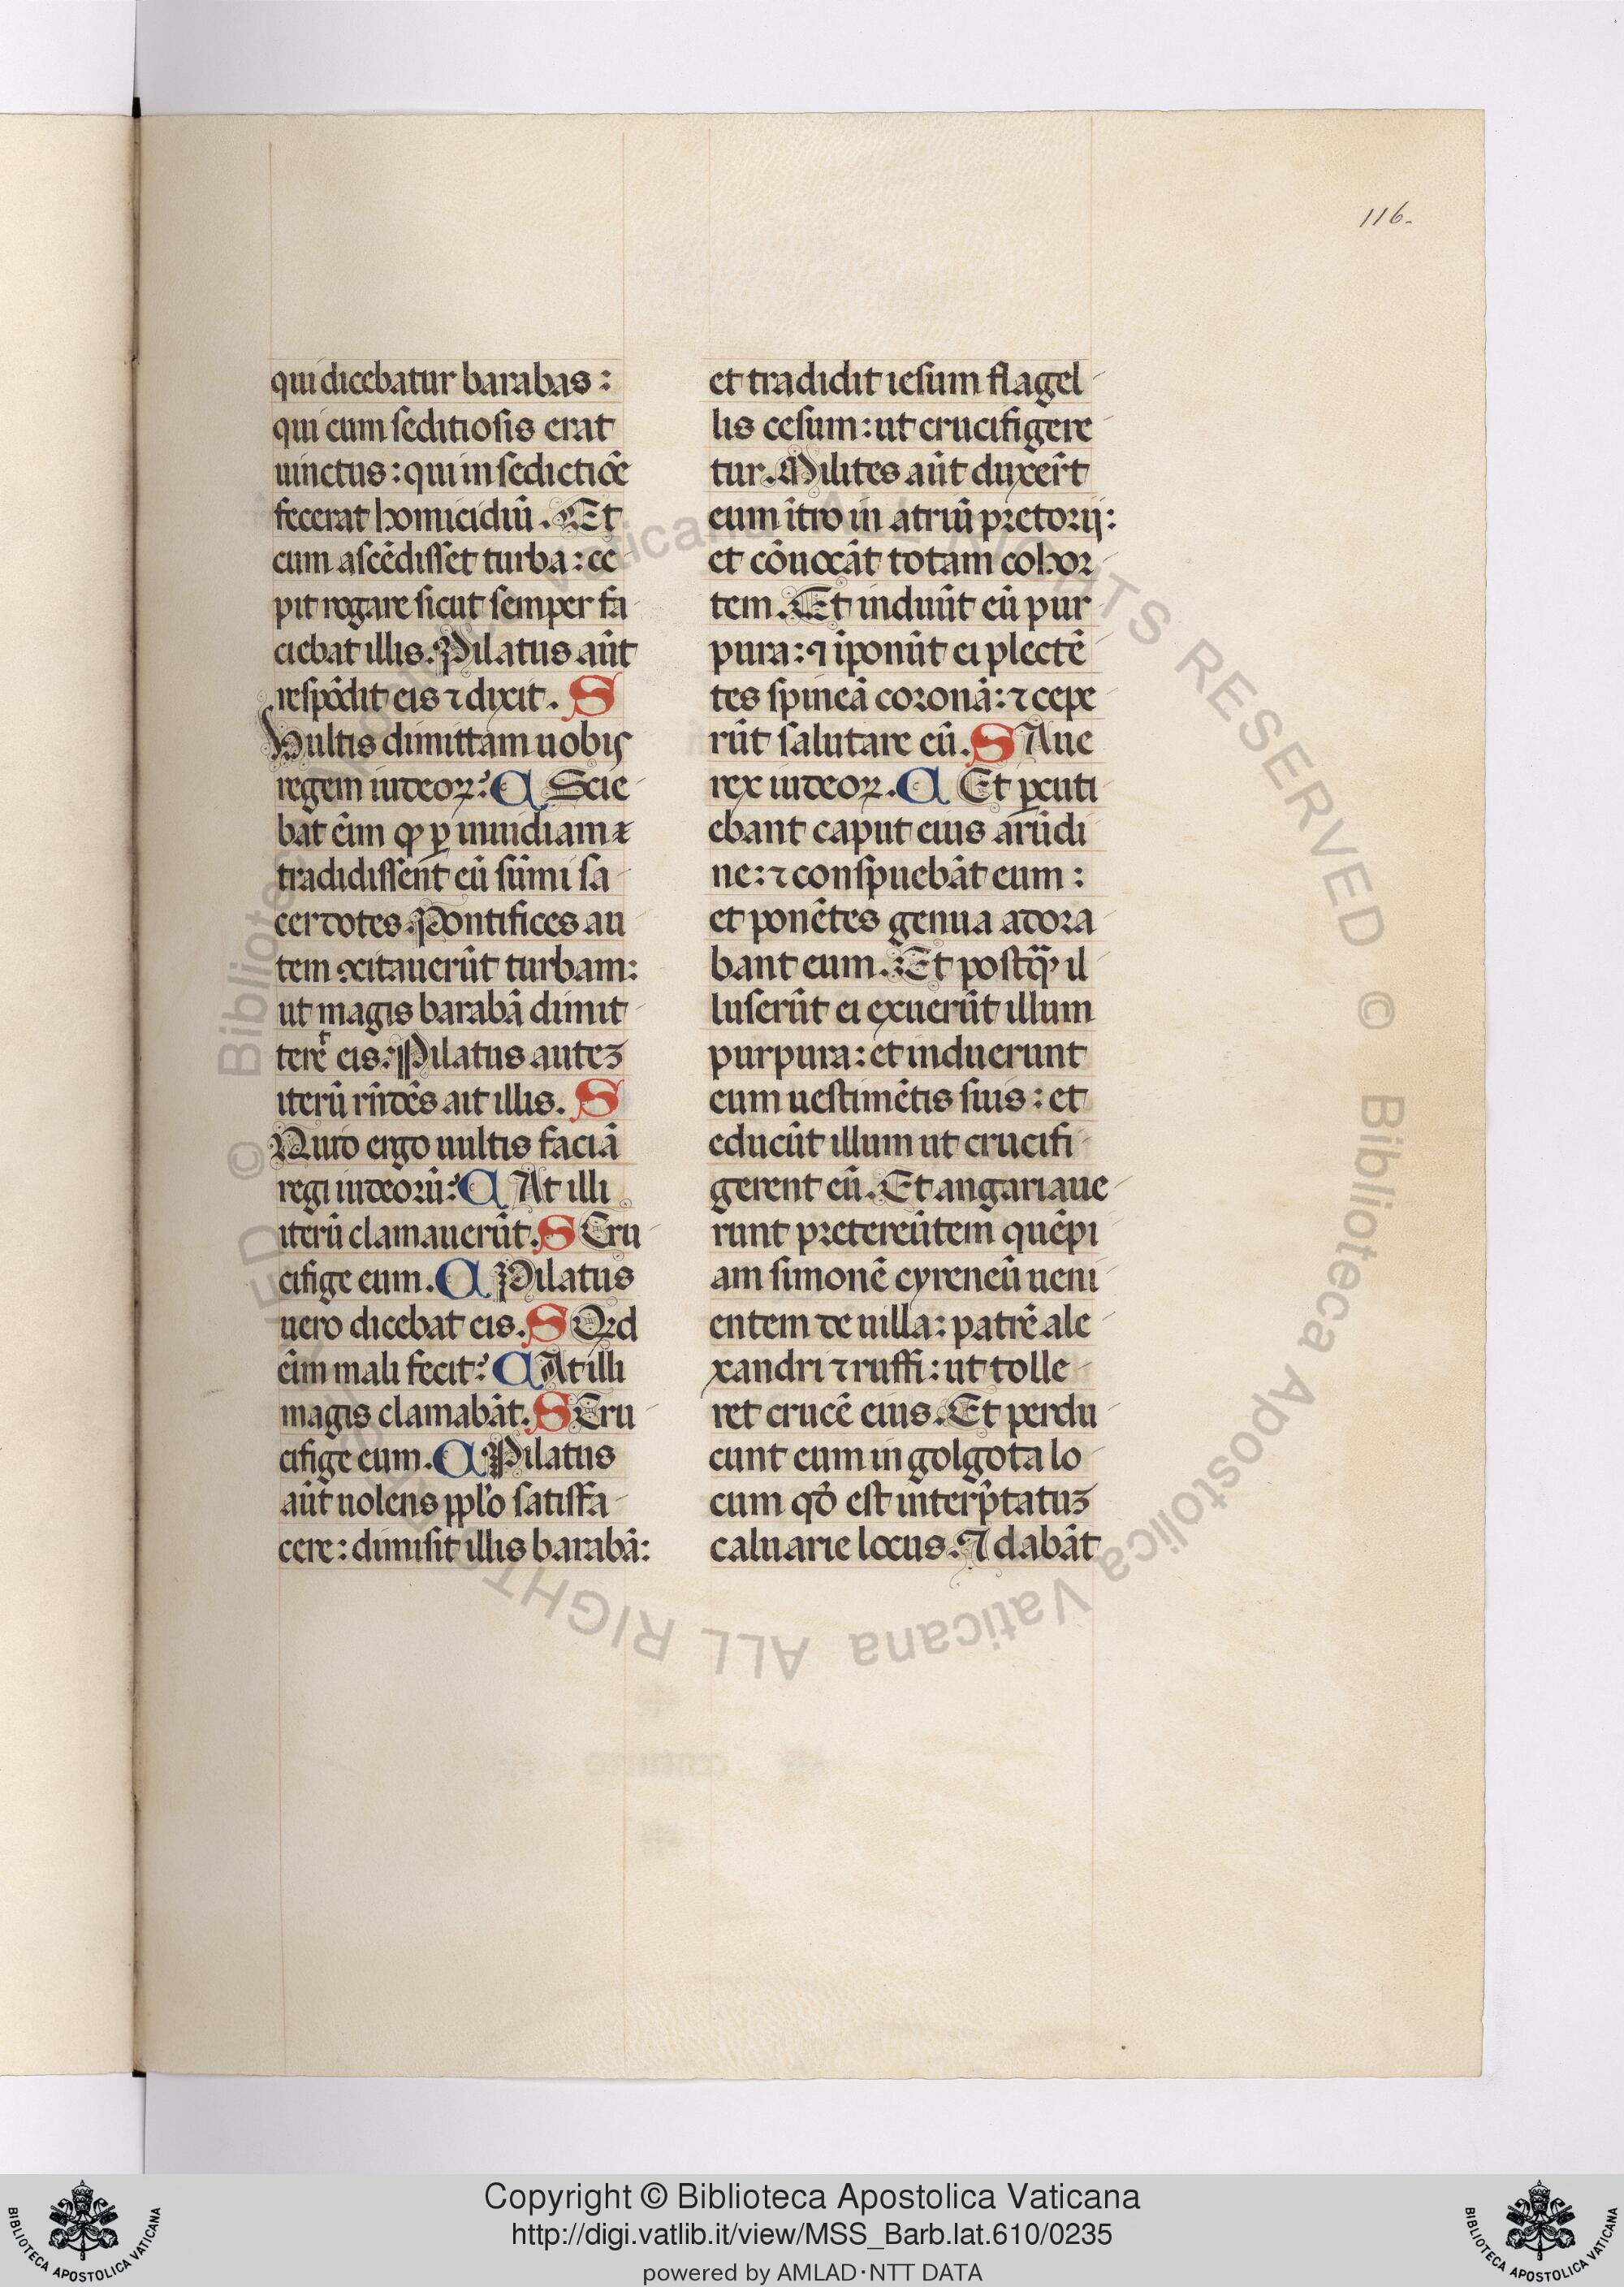 116.
qui dicebatur barabas :
qui cum seditiosis erat
uinctus : qui in sedictiōe
fecerat homicidiū . Et
cum ascēdisset turba : ce
pit rogare sicut semper fa
ciebat illis . Pilatus aūt
respōdit eis ⁊ dixit . S
Vultis dimittam uobis
regem iudeoꝝ ? C Scie
bat eīm ꝙ ꝑ inuidiam
tradidissent eū sūmi sa
cerdotes . Pontifices au
tem ↄcitauerūt turbam :
ut magis barabā dimit
teret eis . Pilatus auteꝫ
iterū rn̄dēs ait illis . S
Quid ergo uultis faciā
regi iudeorū ? C At illi
iterū clamauerūt . S Cru
cifige eum . C Pilatus
uero dicebat eis . S Qꝛd
eīm mali fecit ? C At illi
magis clamabāt . S Cru
cifige eum . C Pilatus
aūt uolens pplo satisfa
cere : dimisit illis barabā :
et tradidit iesum flagel
lis cesum : ut crucifigere
tur . Milites aūt duxer̄t
eum ītro in atriū pretorij :
et cōuocāt totam cohor
tem . Et induūt eū pur
pura : ⁊ īponūt ei plectē
tes spineā coronā : ⁊ cepe
rūt salutare eū . S Aue
rex iudeoꝝ . C Et ꝑcuti
ebant caput eius arūdi
ne : ⁊ conspuebāt eum :
et ponētes genua adora
bant eum . Et postꝙ̄ il
luserūt ei exuerūt illum
purpura : et induerunt
eum uestimētis suis : et
educūt illum ut crucifi
gerent eū . Et angariaue
runt pretereūtem quēpi
am simonē cyreneū ueni
entem de uilla : patrē ale
xandri ⁊ ruffi : ut tolle
ret crucē eius . Et perdu
cunt eum in golgota lo
cum qḋ est interp̄tatuꝫ
caluarie locus . ⁊ dabāt
© Biblioteca Apostolica Vaticana ALL RIGHTS RESERVED © Biblioteca Apostolica Vaticana ALL RIGHTS RESERVED
BIBLIOTECA APOSTOLICA VATICANA
Copyright © Biblioteca Apostolica Vaticana
http://digi.vatlib.it/view/MSS_Barb.lat.610/0235
powered by AMLAD·NTT DATA
BIBLIOTECA APOSTOLICA VATICANA